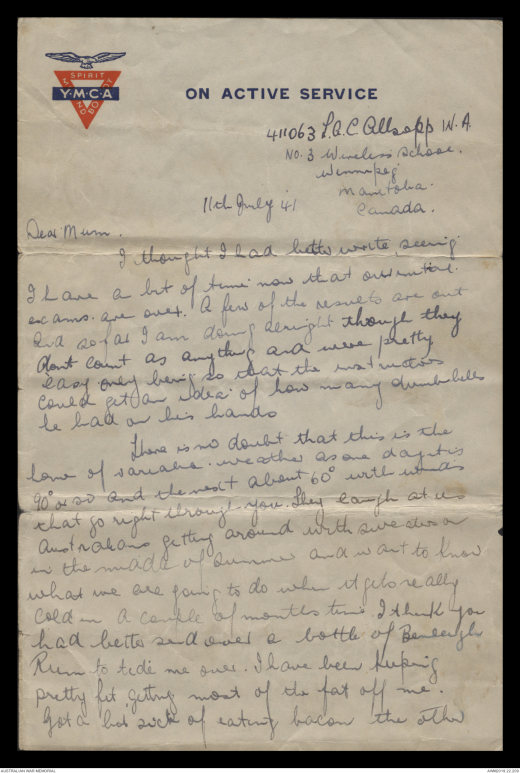 SPIRIT
Y·M·C·A
MIND
BODY
ON ACTIVE SERVICE
411063 L.A.C Allsopp W.A.
No. 3 Wireless School.
Winnipeg
Manitoba.
Canada.
11th July 41
Dear Mum.
I thought I had better write, seeing
I have a bit of time now that our
exams are over. A few of the results are out
and so far I am doing alright though they
dont count as anything and were pretty
easy only being so that the instructors
could get an idea of how many dumbbells
he had on his hands
There is no doubt that this is the
home of variable weather as one day it is
90° or so and the next about 60° with winds
that go right through you. They laugh at us
Australians getting around with sweaters on
in the middle of summer and want to know
what we are going to do when it gets really
cold in a couple of months time. I think you
had better send over a bottle of Beenleigh
Rum to tide me over. I have been keeping
pretty fit, getting most of the fat off me.
Got a bit sick of eating bacon the other
AUSTRALIAN WAR MEMORIAL